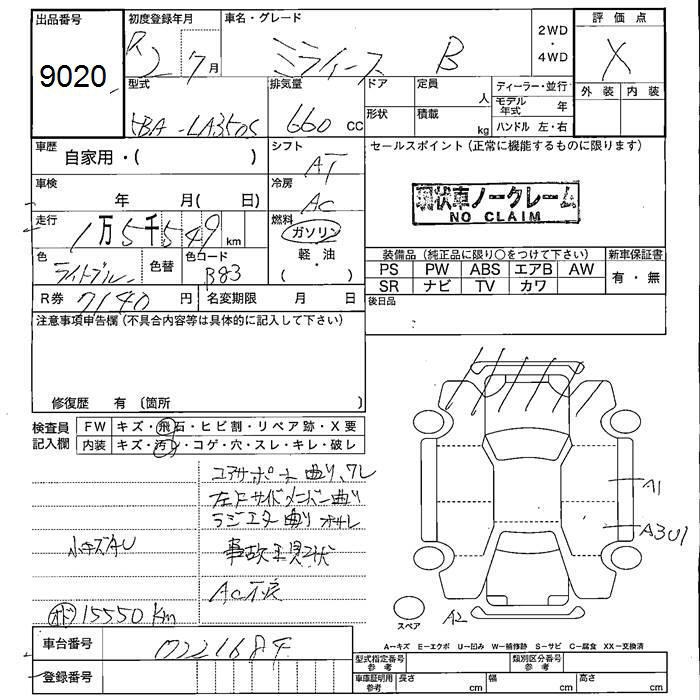 出品番号
9020
初度登録年月
R2 7月
車名・グレード
ミライース B
2WD
・
4WD
評価点
X
外装 内装
型式
5BA-LA350S
排気量
660 cc
ドア
定員
人
形状
積載
kg
ディーラー・並行
モデル年式 年
ハンドル 左・右
車歴
自家用・( )
シフト
AT
車検
年 月( 日)
冷房
AC
走行
1万5千549km
燃料
ガソリン
・
軽・油
( )
色
ライトブルー
色替
色コード
B83
R券 7140 円
名変期限 月 日
セールスポイント(正常に機能するものに限ります)
現状車ノークレーム
NO CLAIM
装備品(純正品に限り○をつけて下さい)
新車保証書
PS PW ABS エアB AW
有・無
SR ナビ TV カワ
後日品
注意事項申告欄(不具合内容等は具体的に記入して下さい)
修復歴 有(箇所 )
検査員記入欄
FW キズ・飛石・ヒビ割・リペア跡・X要
内装 キズ・汚・コゲ・穴・スレ・キレ・破レ
コアサポート曲リ,ワレ
左Fサイドメンバー曲リ
ラジエター曲リ
小キズAU
事故現状
AC不良
オド 15550 Km
A1
A3U1
A2
スペア
車台番号 0221684
登録番号
A…キズ E…エクボ U…凹み W…補修跡 S…サビ C…腐食 XX…交換済
型式指定番号 参考
類別区分番号 参考
車庫証明用 参考
長さ cm 幅 cm 高さ cm